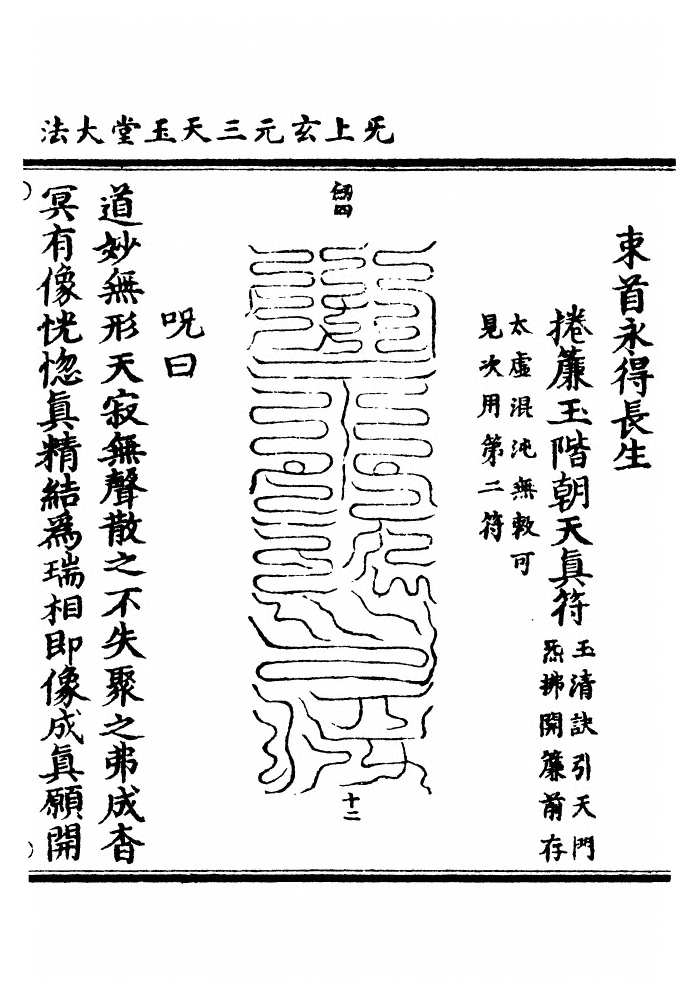 旡上玄元三天玉堂大法
東首永得長生
捲簾玉階朝天眞符
玉清訣引天門
炁拂開簾前存
太虛混沌無可
見次用第二符
十二
呪曰
道妙無形天寂無聲散之不失聚之弗成杳
冥有像恍惚眞精結爲瑞相即像成眞願開